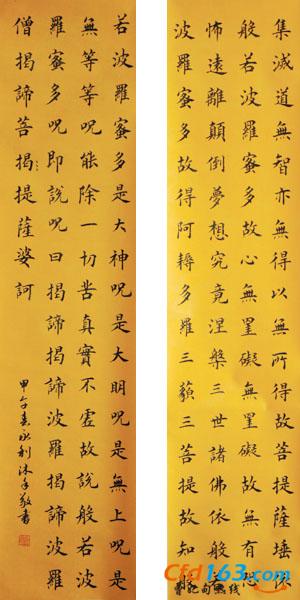 集滅道無智亦無得以無所得故菩提薩埵依
般若波羅蜜多故心無罣礙無罣礙故無有恐
怖遠離顛倒夢想究竟涅槃三世諸佛依般若
波羅蜜多故得阿耨多羅三藐三菩提故知般
若波羅蜜多是大神呪是大明呪是無上呪是
無等等呪能除一切苦真實不虛故說般若波
羅蜜多呪即說呪曰揭諦揭諦波羅揭諦波羅
僧揭諦菩揭提薩婆訶
甲午春永利沐手敬書
Cfd163.com
曹妃甸热线